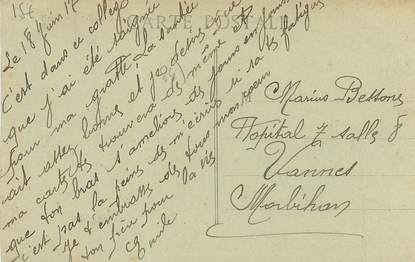 15c
CARTE POSTALE
Le 18 Juin 17
C'est dans ce collège
que j'ai été soignée
pour ma grippe. La santée
est assez bonne et je pense que
ma carte te trouvera de même et
que ton bras s'améliore, tu ferais
c'est pas la peine de m'écrire si sa te fatigue
Je t'embrasse de tout mon cœur
ton pour la vie
Emile
Marius Bessone
Hopital 7 salle 8
Vannes
Morbihan